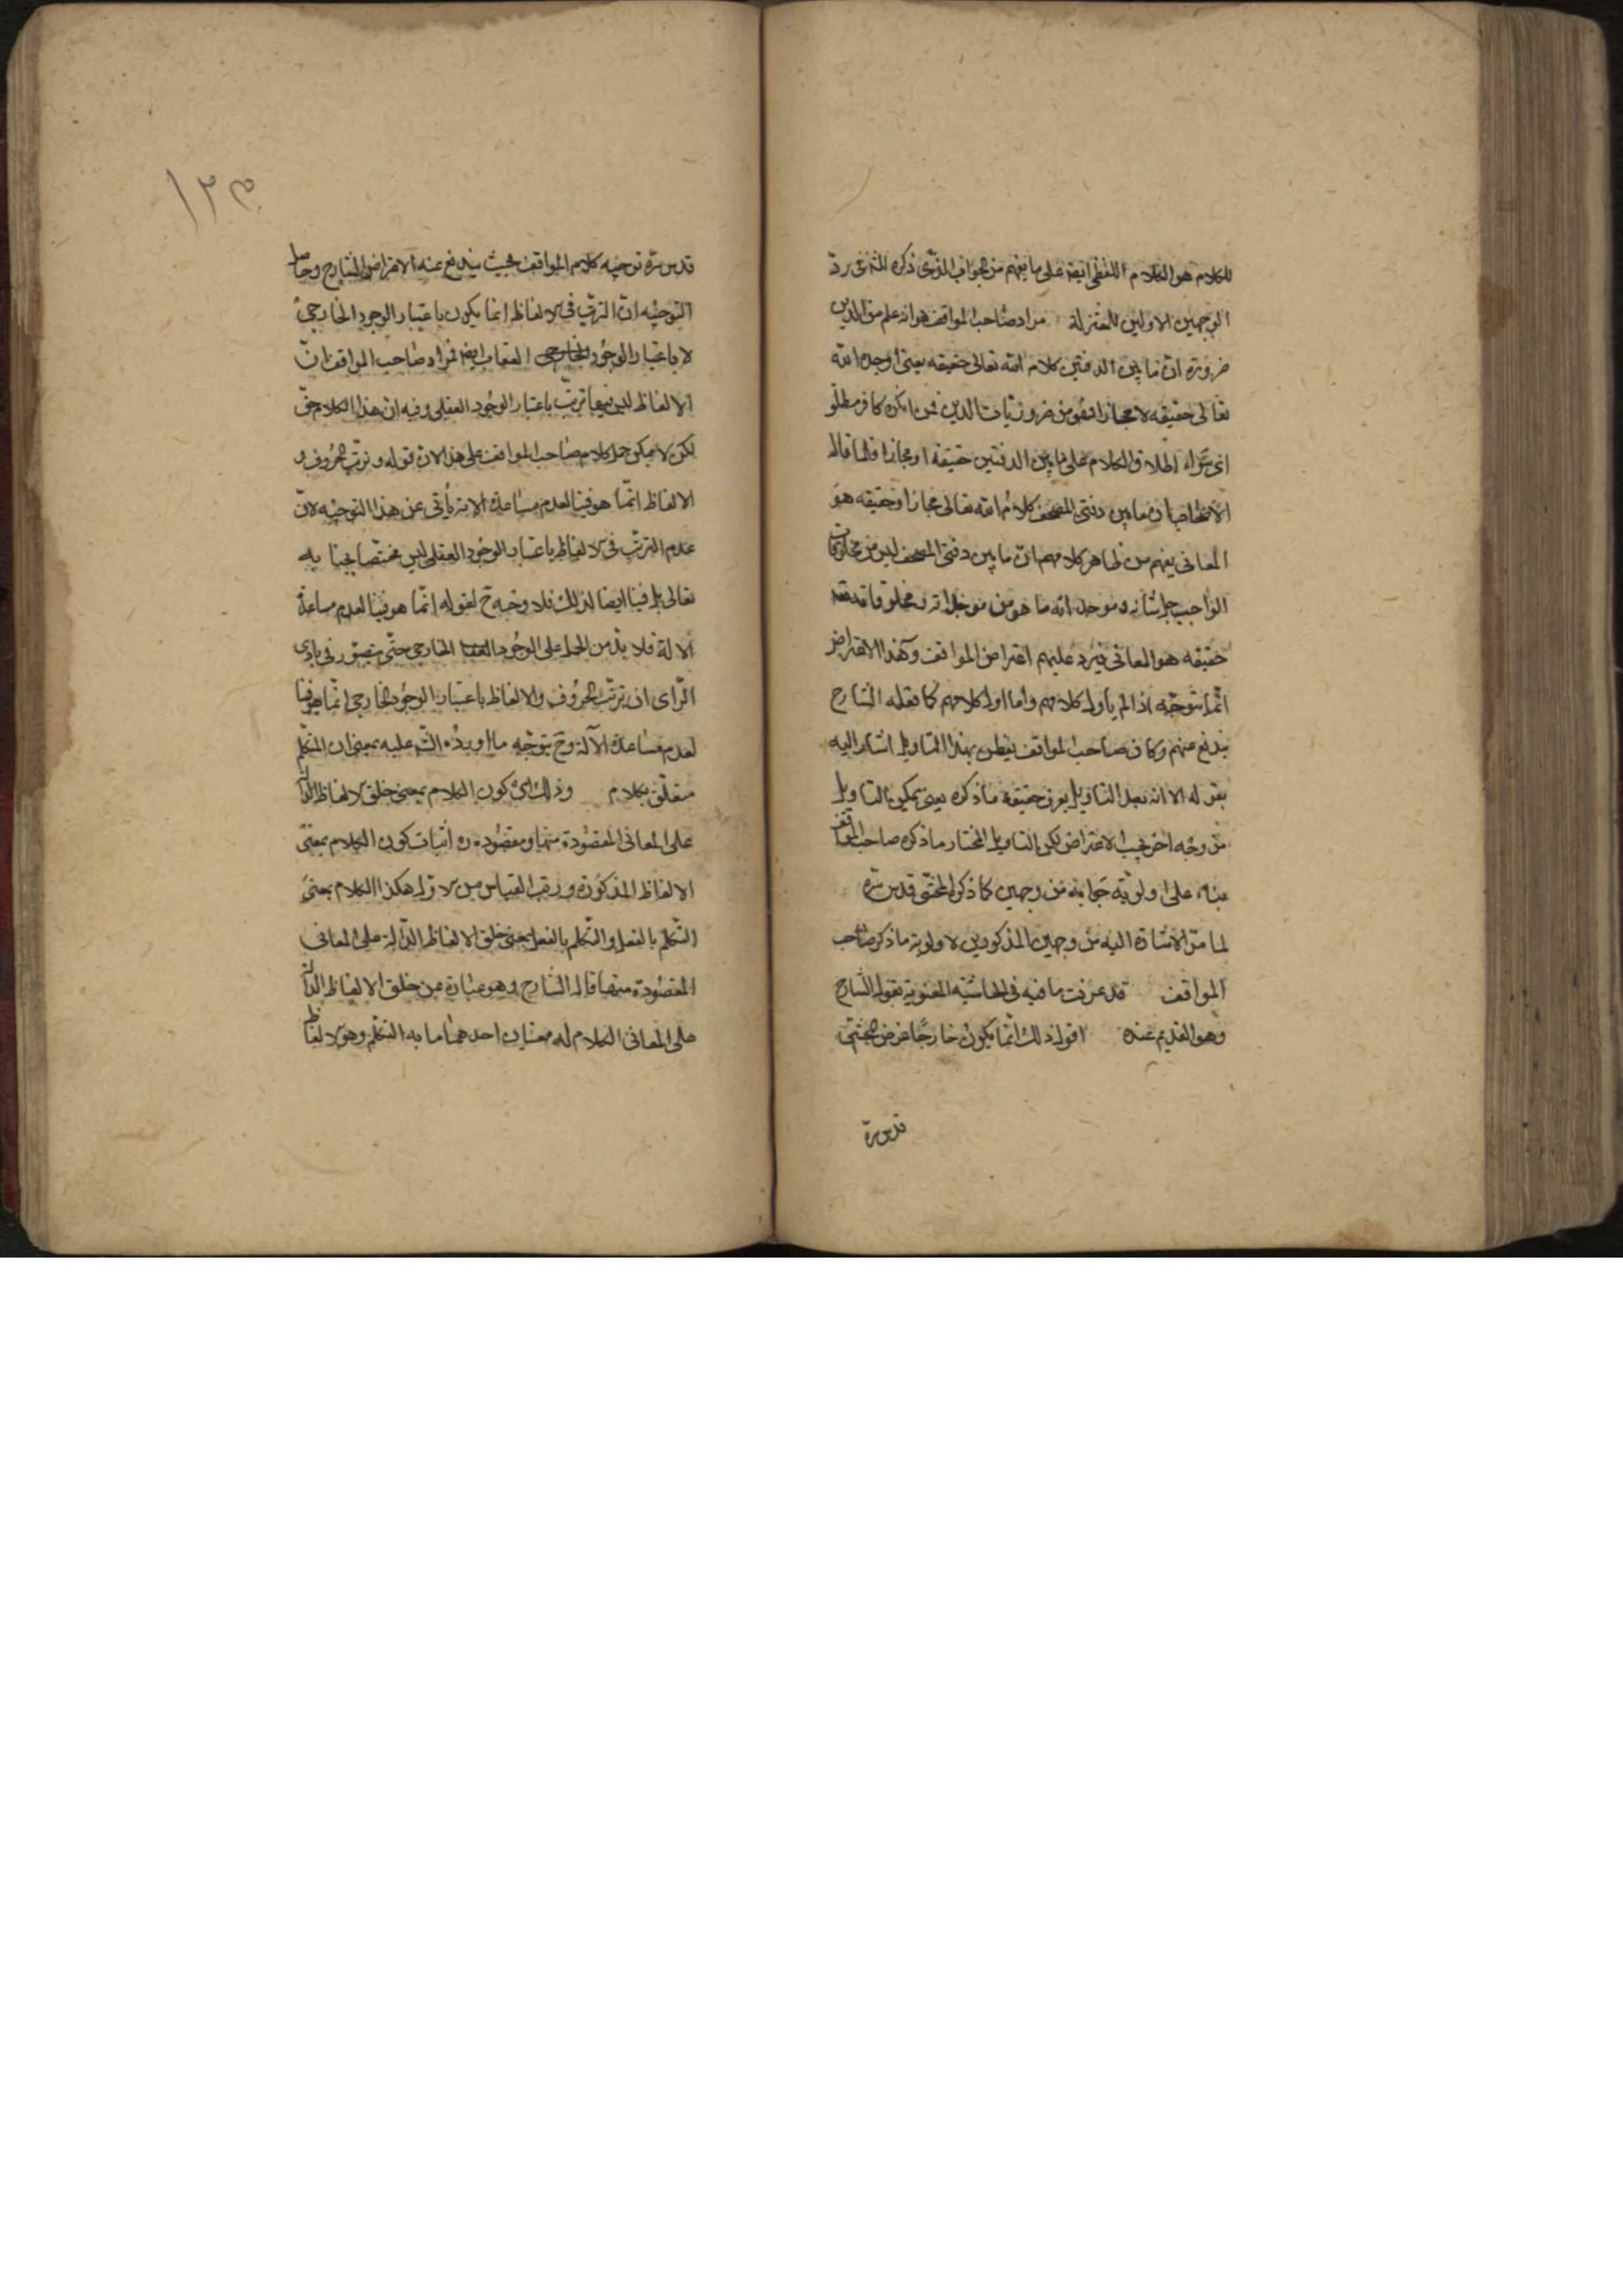 للكلام هو الكلام اللفظى ايضا على ما يفهم من الجواب الذى ذكره الشارح ردّ
الوجهين الاولين للمعتزلة مراد صاحب المواقف هو انه علم من الدين
ضرورة ان ما بين الدفتين كلام الله تعالى حقيقه بمعنى اوجده الله
تعالى حقيقه لا مجازا فهو من ضروريات الدين فمن انكره كافر مطلقا
اى سواء اطلاق الكلام على ما بين الدفتين حقيقة او مجازا فلما قال
الاصحاب ان ما بين دفتى المصحف كلام الله تعالى مجازا وحقيقه هو
المعانى يفهم من ظاهر كلامهم ان ما بين دفتى المصحف ليس من مخلوقات
الواجب جل شأنه وموجد انه ما هو من موجداته ومخلوقاته
حقيقه هو المعانى فيرد عليهم اعتراض المواقف وهذا الاعتراض
انما يتوجه اذا لم يأول كلامهم واما اول كلامهم كما فعله الشارح
يندفع عنهم وكان صاحب المواقف يفطن بهذا التاويل اشار اليه
بقوله الا انه بعد التاويل يعرف حقيقة ما ذكره يعنى يمكن التاويل
من وجه اخر يجيب الاعتراض لكن التاويل المختار ما ذكره صاحب المواقف
بناء على اولويّة جوابه من وجهين كما ذكره المحشى قدس سره
لما مرّ الاشارة اليه من وجهين المذكورين لاولوية ما ذكر صاحب
المواقف قد عرفت ما فيه فى الحاشية المعنوية بقول الشارح
وهو القديم عنده اقول ذلك انما يكون خارجًا عن غرض المحشى
قدس سره
١٢٣
قدس سره توجيه كلام المواقف بحيث يندفع عنه الاعتراض الشارح وحاصل
التوجيه انّ الترتيب فى الالفاظ انما يكون باعتبار الوجود الخارجى
لا باعتبار الوجود الخارجى العقلى ايضا فمراد صاحب المواقف انّ
الالفاظ ليس فيها ترتّب باعتبار الوجود العقلى وفيه ان هذا الكلام حقّ
لكن لا يمكن حمل كلام صاحب المواقف على هذا لان قوله وترتب الحروف و
الالفاظ انّما هو فينا لعدم مساعدة الالة يأبى عن هذا التوجيه لانّ
عدم الترتّب فى الالفاظ باعتبار الوجود العقلى ليس مختصا بجنابه
تعالى بل فينا ايضا كذلك فلا وجه ح لقوله انّما هو فينا لعدم مساعدة
الالة فلا بدّ من الحمل على الوجود العقلى الخارجى حتّى يتصوّر فى بادى
الرّاى ان ترتّب الحروف والالفاظ باعتبار الوجود الخارجى انّما هو فينا
لعدم مساعدة الآلة وح يتوجّه ما اورده الشّ عليه بمعنى ان المتكلّم
متعلّق بكلام وذلك اى كون الكلام بمعنى خلق الالفاظ الدالة
على المعانى المقصودة منها ومقصوده ره اثبات كون الكلام بمعنى
الالفاظ المذكورة ورتب القياس من الاول هكذا الكلام بمعنى
التكلّم بالفعل والتكلّم بالفعل بمعنى خلق الالفاظ الدّالة على المعانى
المقصودة منها قال الشارح وهو عبارة عن خلق الالفاظ الدالة
على المعانى الكلام له معنيان احدهما ما به التكلّم وهو الالفاظ